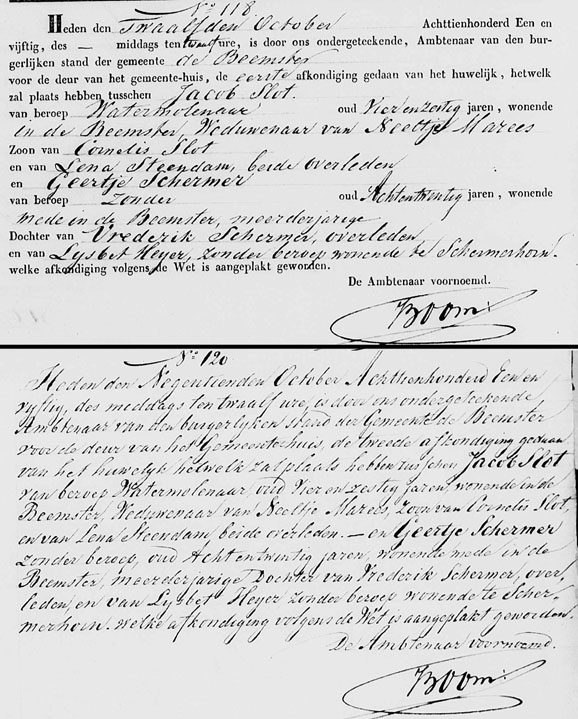 No 118
Heden den Twaalfden October Achttienhonderd Een en
vijftig, des — middags ten twaalf ure, is door ons ondergeteekende, Ambtenaar van den bur-
gerlijken stand der gemeente de Beemster
voor de deur van het gemeente-huis, de eerste afkondiging gedaan van het huwelijk, hetwelk
zal plaats hebben tusschen Jacob Slot.
van beroep Watermolenaar oud Vier en zestig jaren, wonende
in de Beemster, Weduwenaar van Neeltje Marees
Zoon van Cornelis Slot
en van Lena Steendam, beide overleden
en Geertje Schermer
van beroep zonder oud Achtentwintig jaren, wonende
mede in de Beemster, meerderjarige
Dochter van Vrederik Schermer, overleden
en van Lijsbet Heyer, zonder beroep wonende te Schermerhorn.
welke afkondiging volgens de Wet is aangeplakt geworden.
De Ambtenaar voornoemd.
Boom:
No 120
Heden den Negentienden October Achttienhonderd Een en
vijftig, des middags ten twaalf ure, is door ons ondergeteekende
Ambtenaar van den burgerlijken stand der Gemeente de Beemster
voor de deur van het Gemeentehuis, de tweede afkondiging gedaan
van het huwelijk hetwelk zal plaats hebben tusschen Jacob Slot
van beroep Watermolenaar, oud Vier en zestig jaren, wonende in de
Beemster, Weduwenaar van Neeltje Marees, zoon van Cornelis Slot,
en van Lena Steendam, beide overleden. — en Geertje Schermer
zonder beroep, oud Acht en twintig jaren, wonende mede in de
Beemster, meerderjarige Dochter van Vrederik Schermer, over-
leden, en van Lijsbet Heyer zonder beroep wonende te Scher-
merhorn. welke afkondiging volgens de Wet is aangeplakt geworden.
De Ambtenaar voornoemd.
Boom: